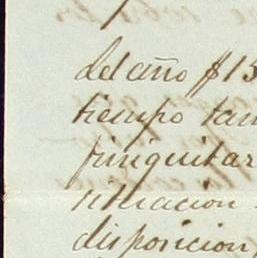 del año $15
tiempo tan
finiquitar
situacion
disposicion,